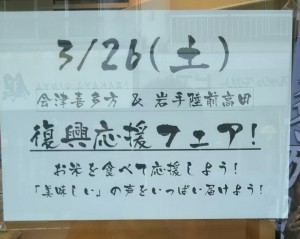 3/26(土)
会津喜多方 & 岩手陸前高田
復興応援フェア!
お米を食べて応援しよう!
「美味しい」の声をいっぱい届けよう!